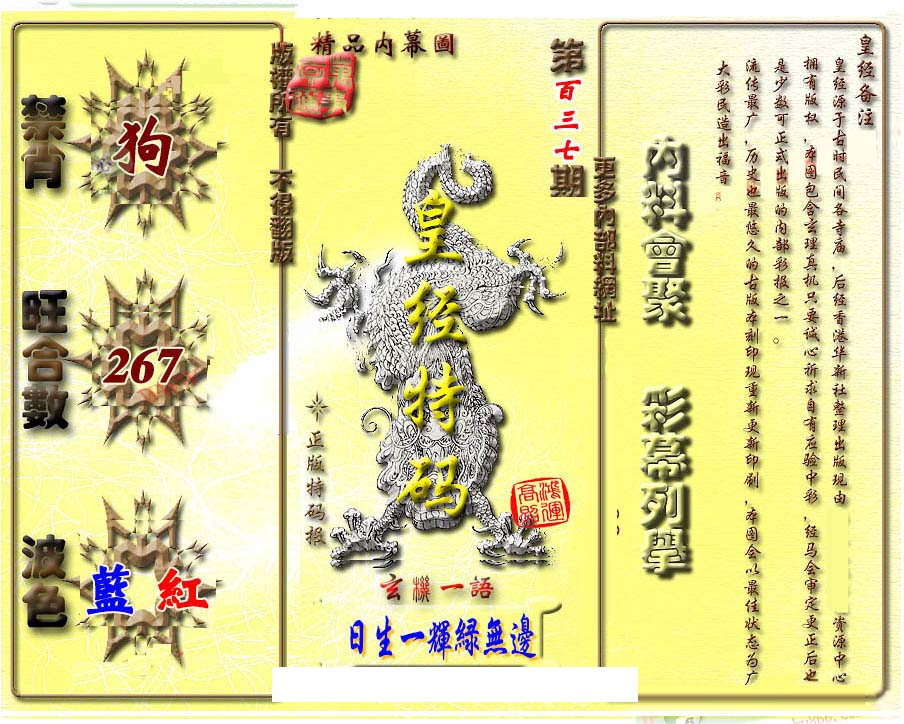 禁肖
狗
旺合數
267
波色
藍 紅
版權所有 不得翻版
精品內幕圖
第百三七期
更多内部料網址
皇经特码
正版特码报
鴻運高照
玄機一語
日生一輝緑無邊
内料會聚
彩幕列學
皇经备注
皇经源于古时民间各寺庙，后经香港华新社整理出版现由 资源中心
拥有版权，本图包含玄理真机只要诚心祈求自有应验中彩，经马会审定更正后也
是少数可正式出版的内部彩报之一。
流传最广，历史也最悠久的古版本刻印现重新更新印刷，本图会以最佳状态为广
大彩民造出福音